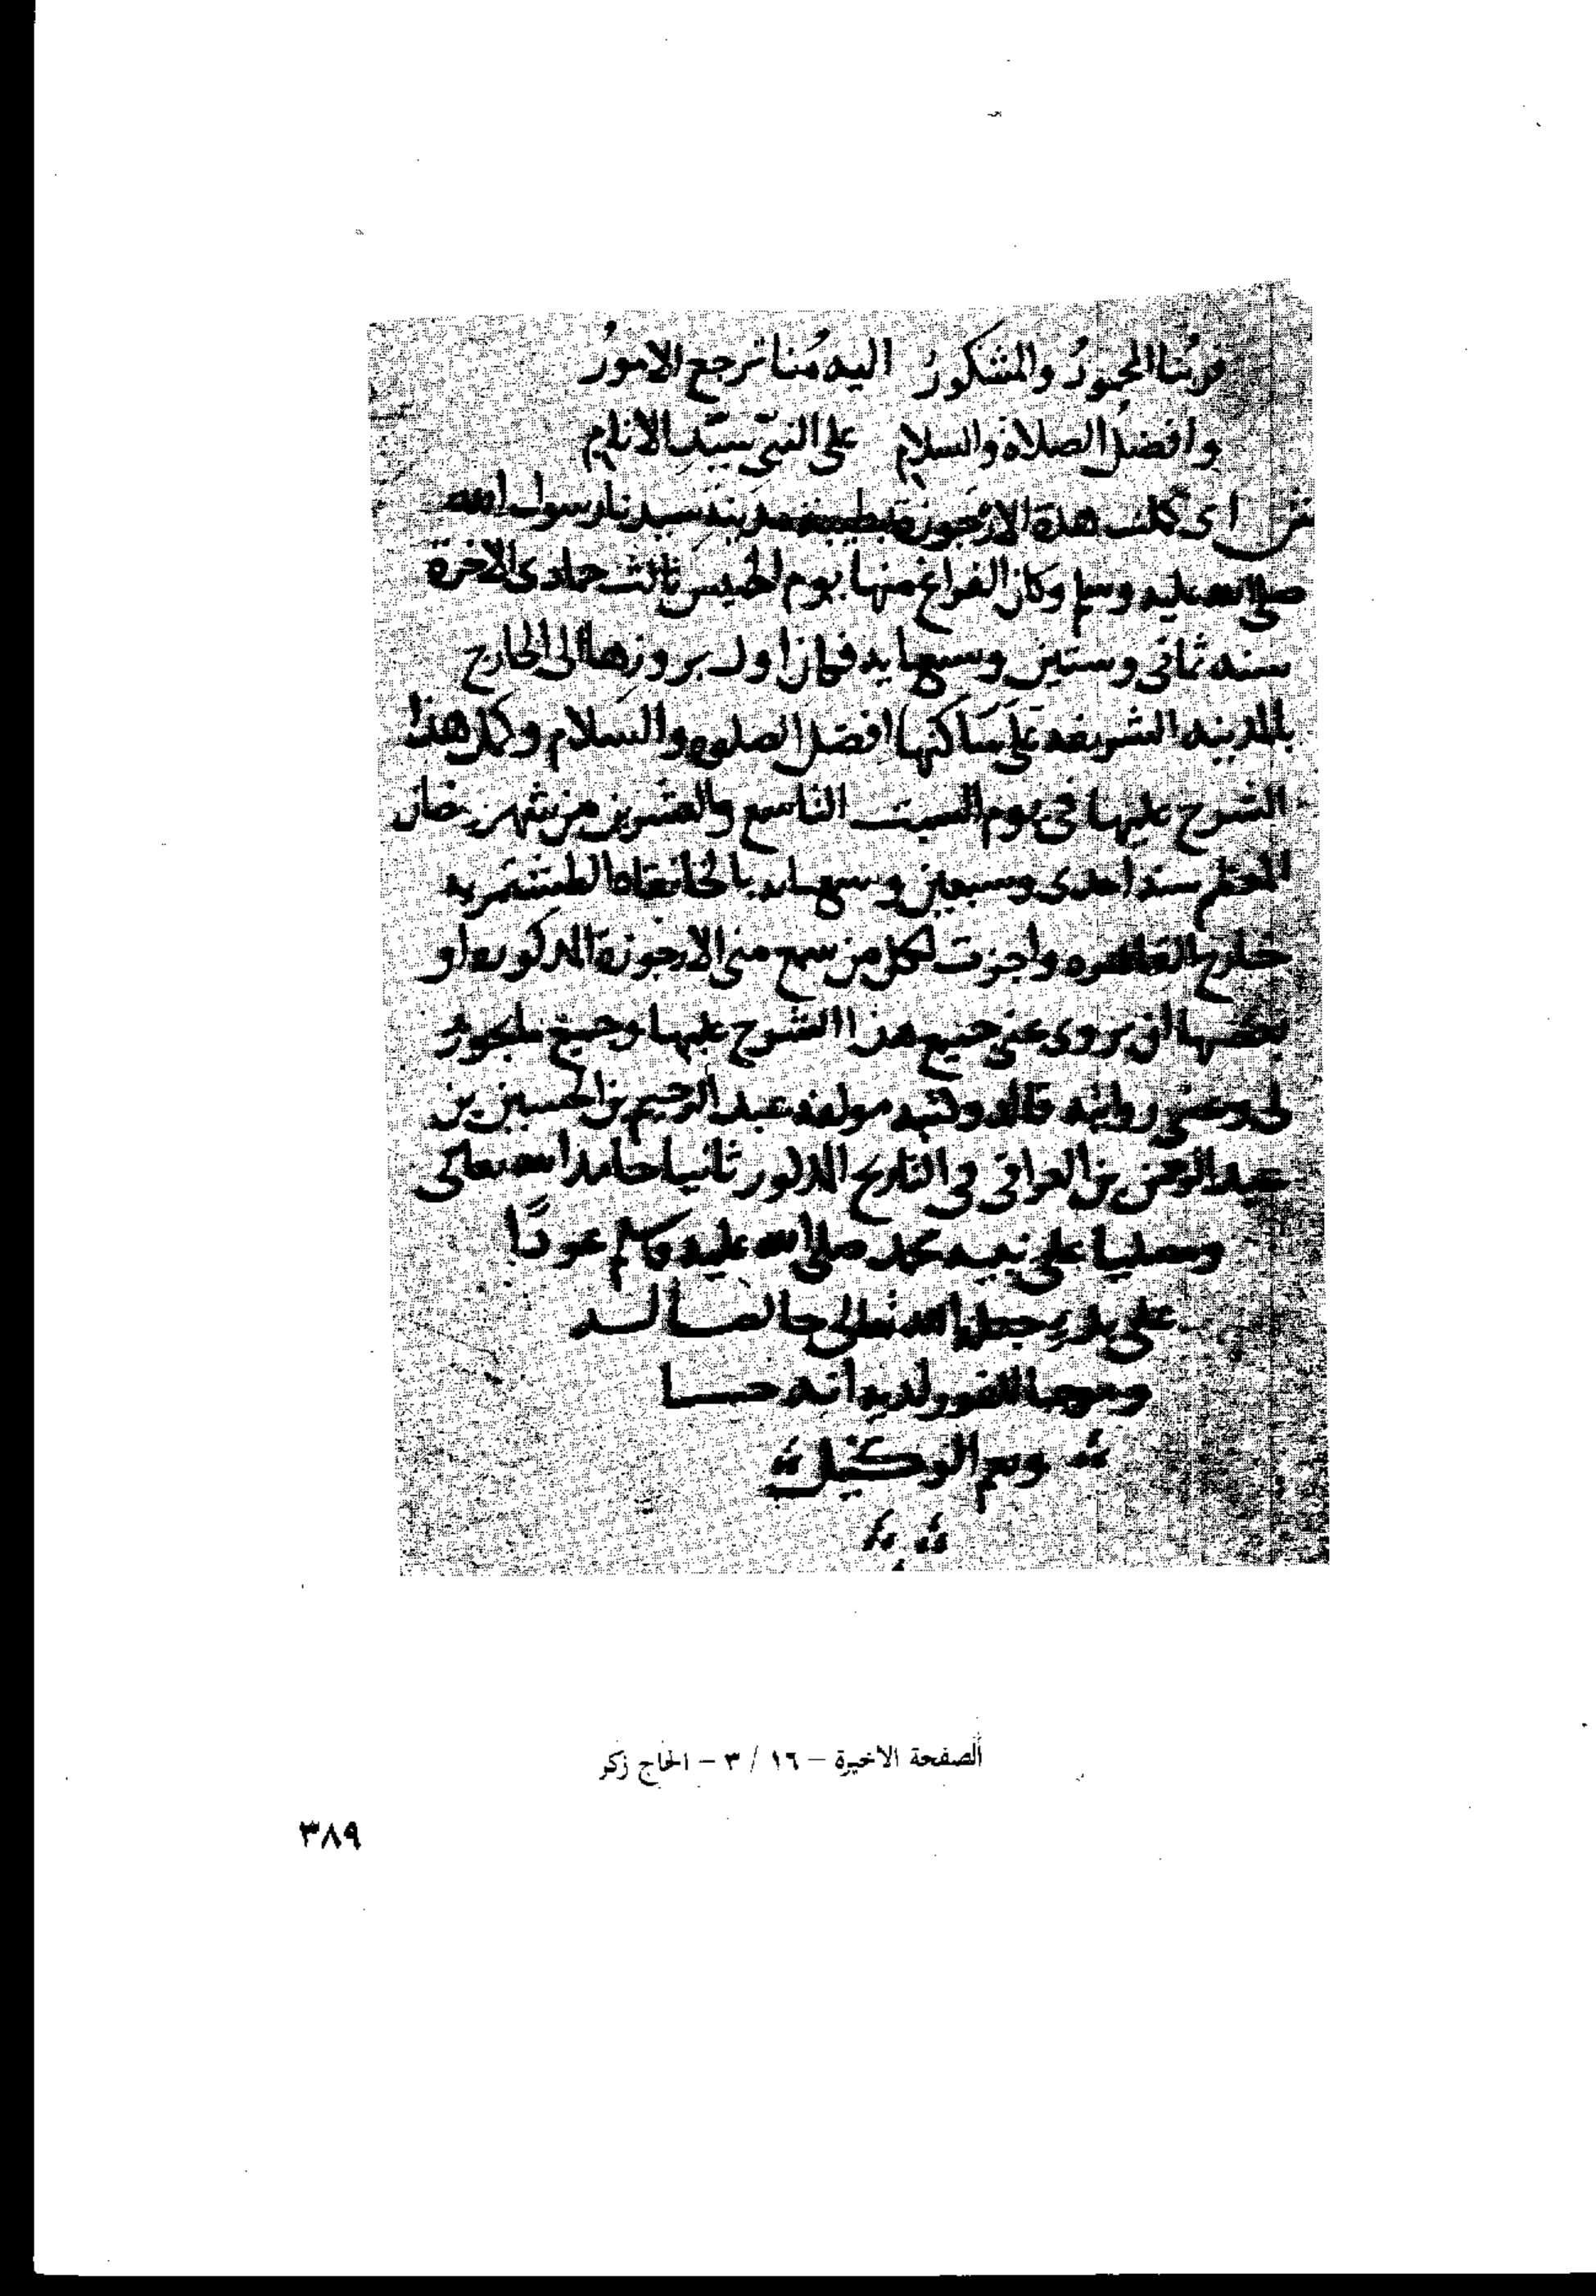 فربنا المحمود والمشكور اليه منا ترجع الامور
وافضل الصلاة والسلام على النبي سيد الانام
ش اى كملت هذه الارجوزة بطيبة مدينة سيدنا رسول الله
صلى الله عليه وسلم وكان الفراغ منها يوم الخميس ثالث جمادى الاخرة
سنه ثمانى وستين وسبعمايه فكان اول بروزها الى الخارج
بالمدينه الشريفه على ساكنها افضل الصلوه والسلام وكمل هذا
الشرح عليها فى يوم السبت التاسع والعشرين من شهر رمضان
المعظم سنه احدى وسبعين وسبعمايه بالخانقاه الطشتمريه
خارج القاهره واجزت لكل من سمع منى الارجوزة المذكوره او
بعضها ان يروى عنى جميع هذا الشرح عليها وجميع ما يجوز
لى وعنى روايته قاله وكتبه مولفه عبد الرحيم بن الحسين بن
عبد الرحمن بن العراقى فى التاريخ المذكور ثانيا حامدا لله تعالى
ومصليا على نبيه محمد صلى الله عليه وسلم عودًا
على بدء جعله الله تعالى خالصا له
وموجبا للفوز لديه انه حسبنا
ونعم الوكيل
الصفحة الاخيرة – ١٦ / ٣ – الحاج زكر
٣٨٩